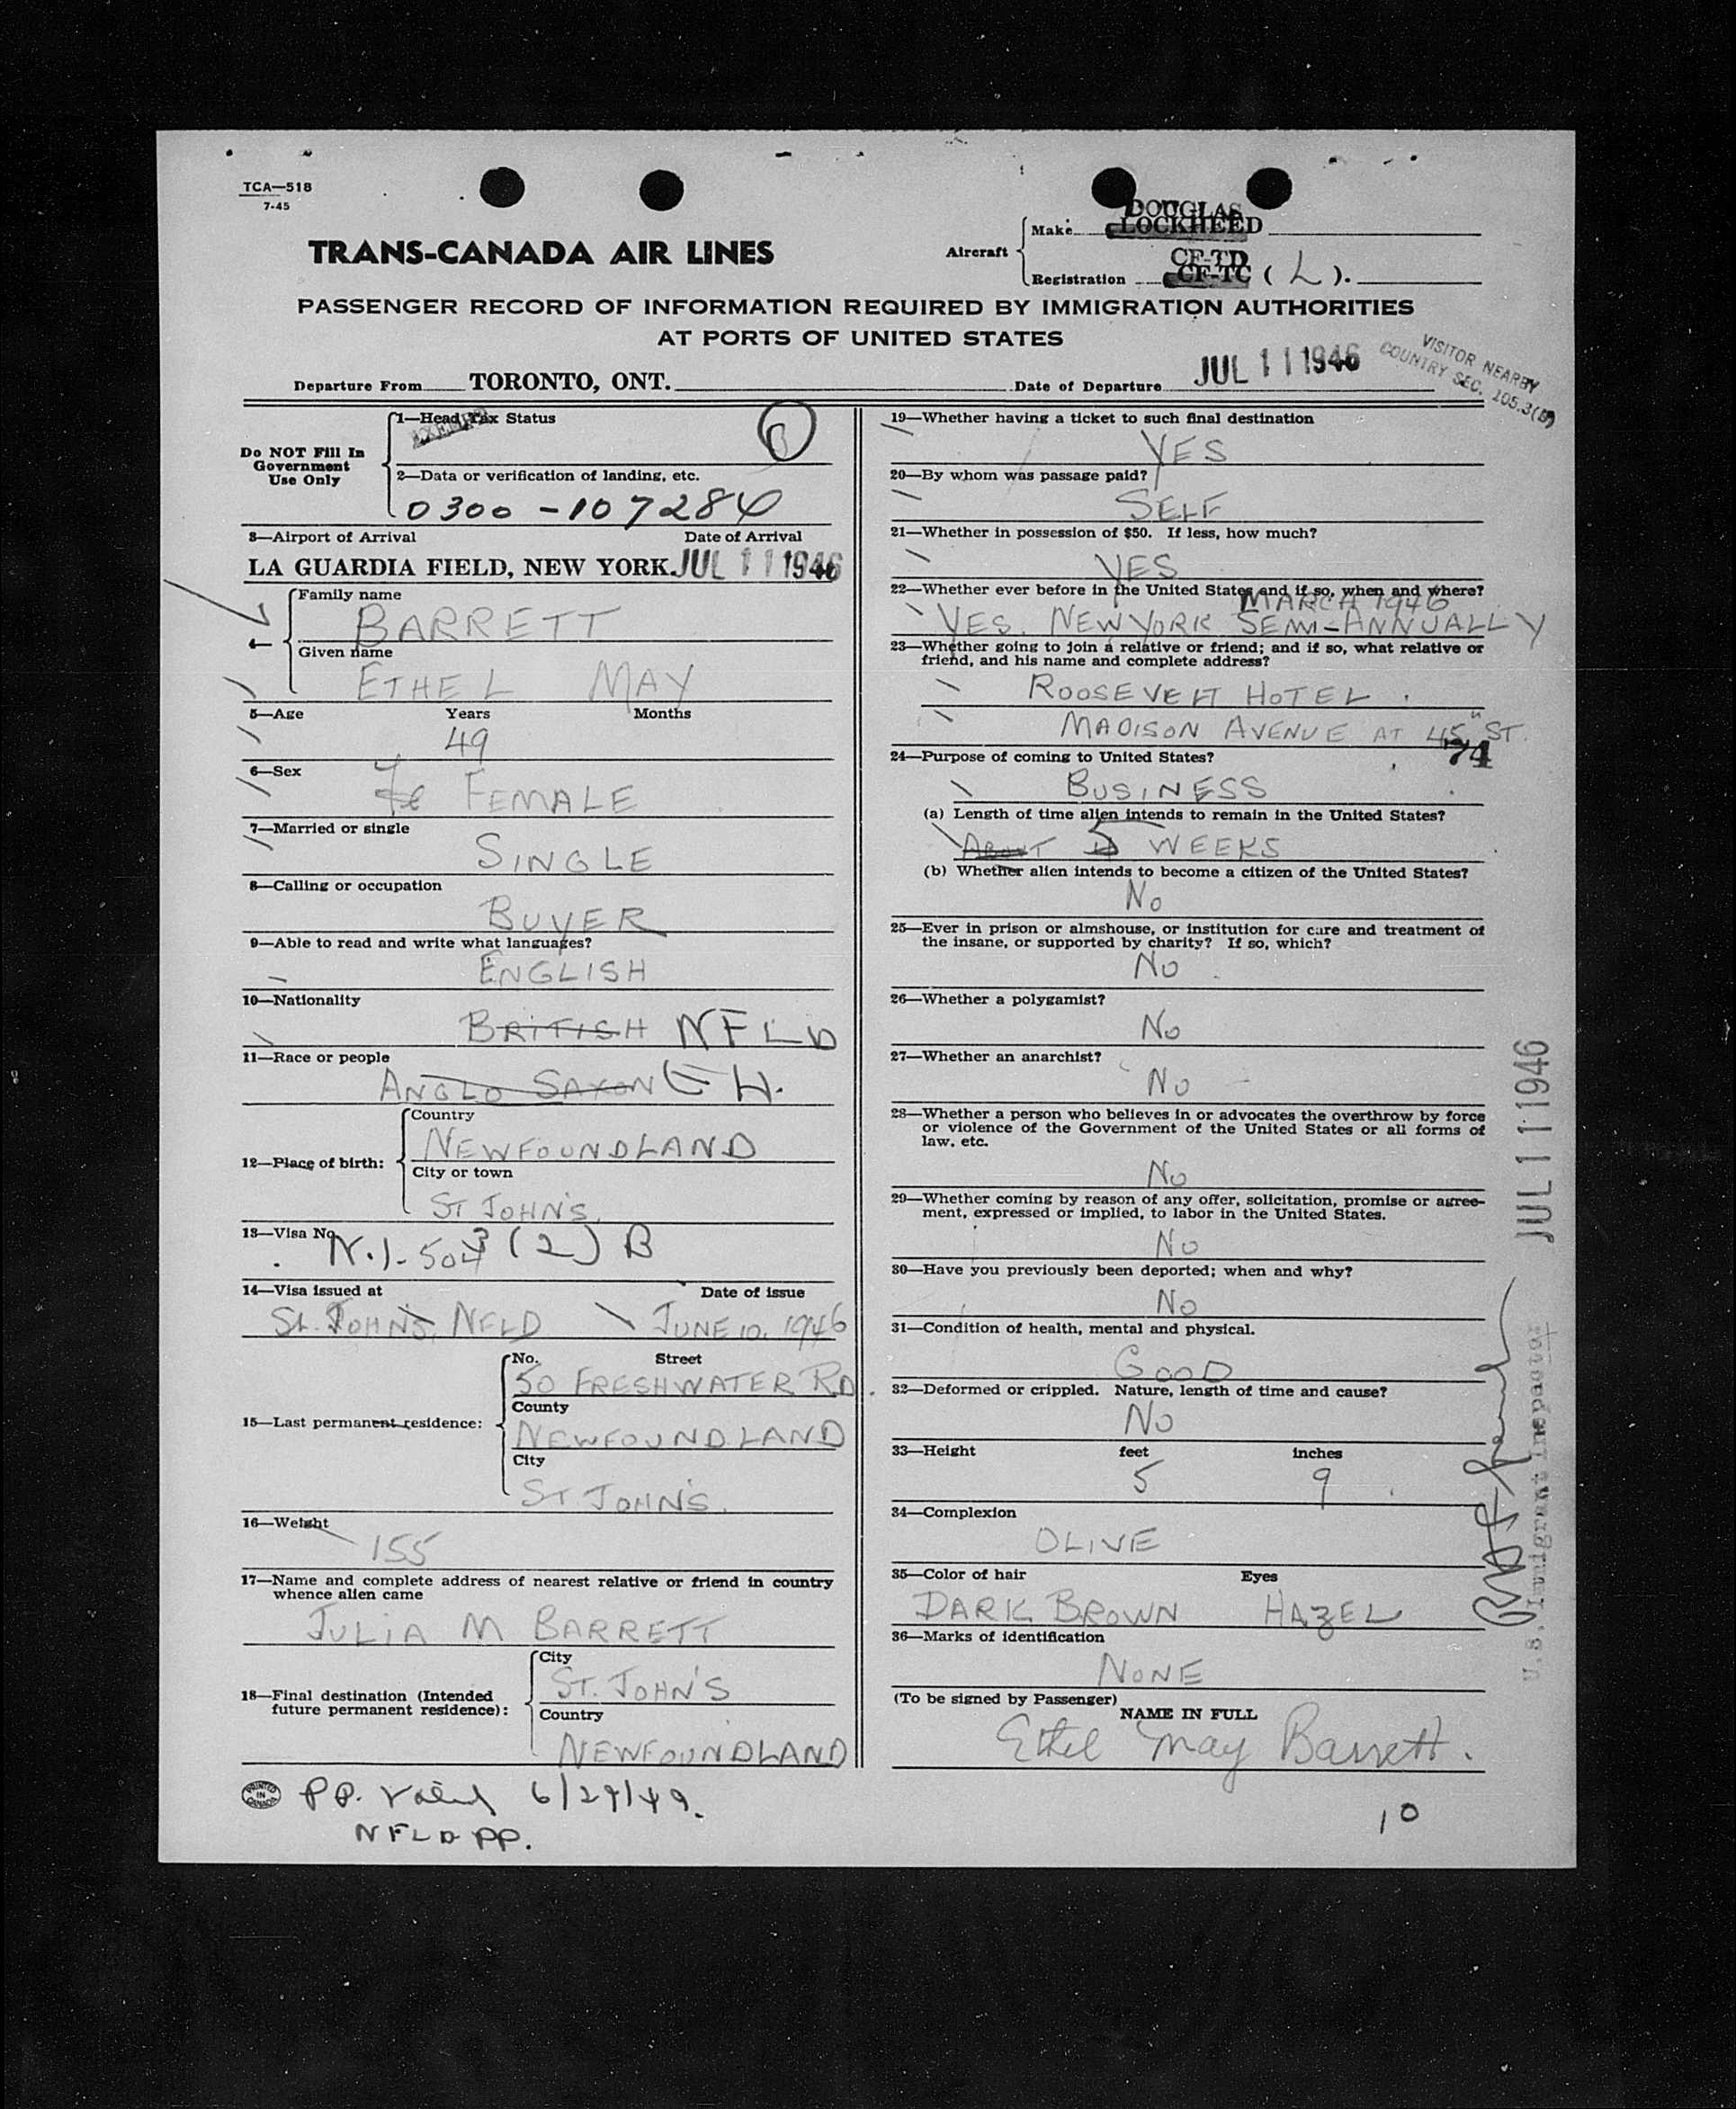 TCA—518
7-45
TRANS-CANADA AIR LINES
Aircraft
Make
DOUGLAS
LOCKHEED
Registration
CF-TD
CF-TC ( L ).
PASSENGER RECORD OF INFORMATION REQUIRED BY IMMIGRATION AUTHORITIES
AT PORTS OF UNITED STATES
Departure From TORONTO, ONT.
Date of Departure JUL 11 1946
VISITOR NEARBY
COUNTRY SEC. 105.3(B)
Do NOT Fill In
Government
Use Only
1—Head Tax Status
EXEMPT
2—Data or verification of landing, etc.
0300-107284
3—Airport of Arrival Date of Arrival
LA GUARDIA FIELD, NEW YORK. JUL 11 1946
4—
Family name
BARRETT
Given name
ETHEL MAY
5—Age Years Months
49
6—Sex
FEMALE
7—Married or single
SINGLE
8—Calling or occupation
BUYER
9—Able to read and write what languages?
ENGLISH
10—Nationality
BRITISH NFLD
11—Race or people
ANGLO SAXON
12—Place of birth:
Country
NEWFOUNDLAND
City or town
ST JOHN'S.
13—Visa No.
(2) B
14—Visa issued at Date of issue
St. JOHN'S, NFLD JUNE 10, 1946
15—Last permanent residence:
No. Street
50 FRESHWATER RD.
County
NEWFOUNDLAND
City
ST JOHN'S.
16—Weight
155
17—Name and complete address of nearest relative or friend in country
whence alien came
JULIA M BARRETT
18—Final destination (Intended
future permanent residence):
City
ST. JOHN'S
Country
NEWFOUNDLAND
PRINTED
IN
CANADA
PP. Valid 6/29/49.
NFLD PP.
19—Whether having a ticket to such final destination
YES
20—By whom was passage paid?
SELF
21—Whether in possession of $50. If less, how much?
YES
22—Whether ever before in the United States and if so, when and where?
MARCH 1946
YES. NEW YORK SEMI-ANNUALLY
23—Whether going to join a relative or friend; and if so, what relative or
friend, and his name and complete address?
ROOSEVELT HOTEL.
MADISON AVENUE AT 45th ST.
74
24—Purpose of coming to United States?
BUSINESS
(a) Length of time alien intends to remain in the United States?
ABOUT 5 WEEKS
(b) Whether alien intends to become a citizen of the United States?
No
25—Ever in prison or almshouse, or institution for care and treatment of
the insane, or supported by charity? If so, which?
No
26—Whether a polygamist?
No
27—Whether an anarchist?
No
28—Whether a person who believes in or advocates the overthrow by force
or violence of the Government of the United States or all forms of
law, etc.
No
29—Whether coming by reason of any offer, solicitation, promise or agree-
ment, expressed or implied, to labor in the United States.
No
30—Have you previously been deported; when and why?
No
31—Condition of health, mental and physical.
GOOD
32—Deformed or crippled. Nature, length of time and cause?
No
33—Height feet inches
5 9
34—Complexion
OLIVE
35—Color of hair Eyes
DARK BROWN HAZEL
36—Marks of identification
NONE
(To be signed by Passenger)
NAME IN FULL
Ethel May Barrett.
10
JUL 11 1946
U.S. Immigrant Inspector